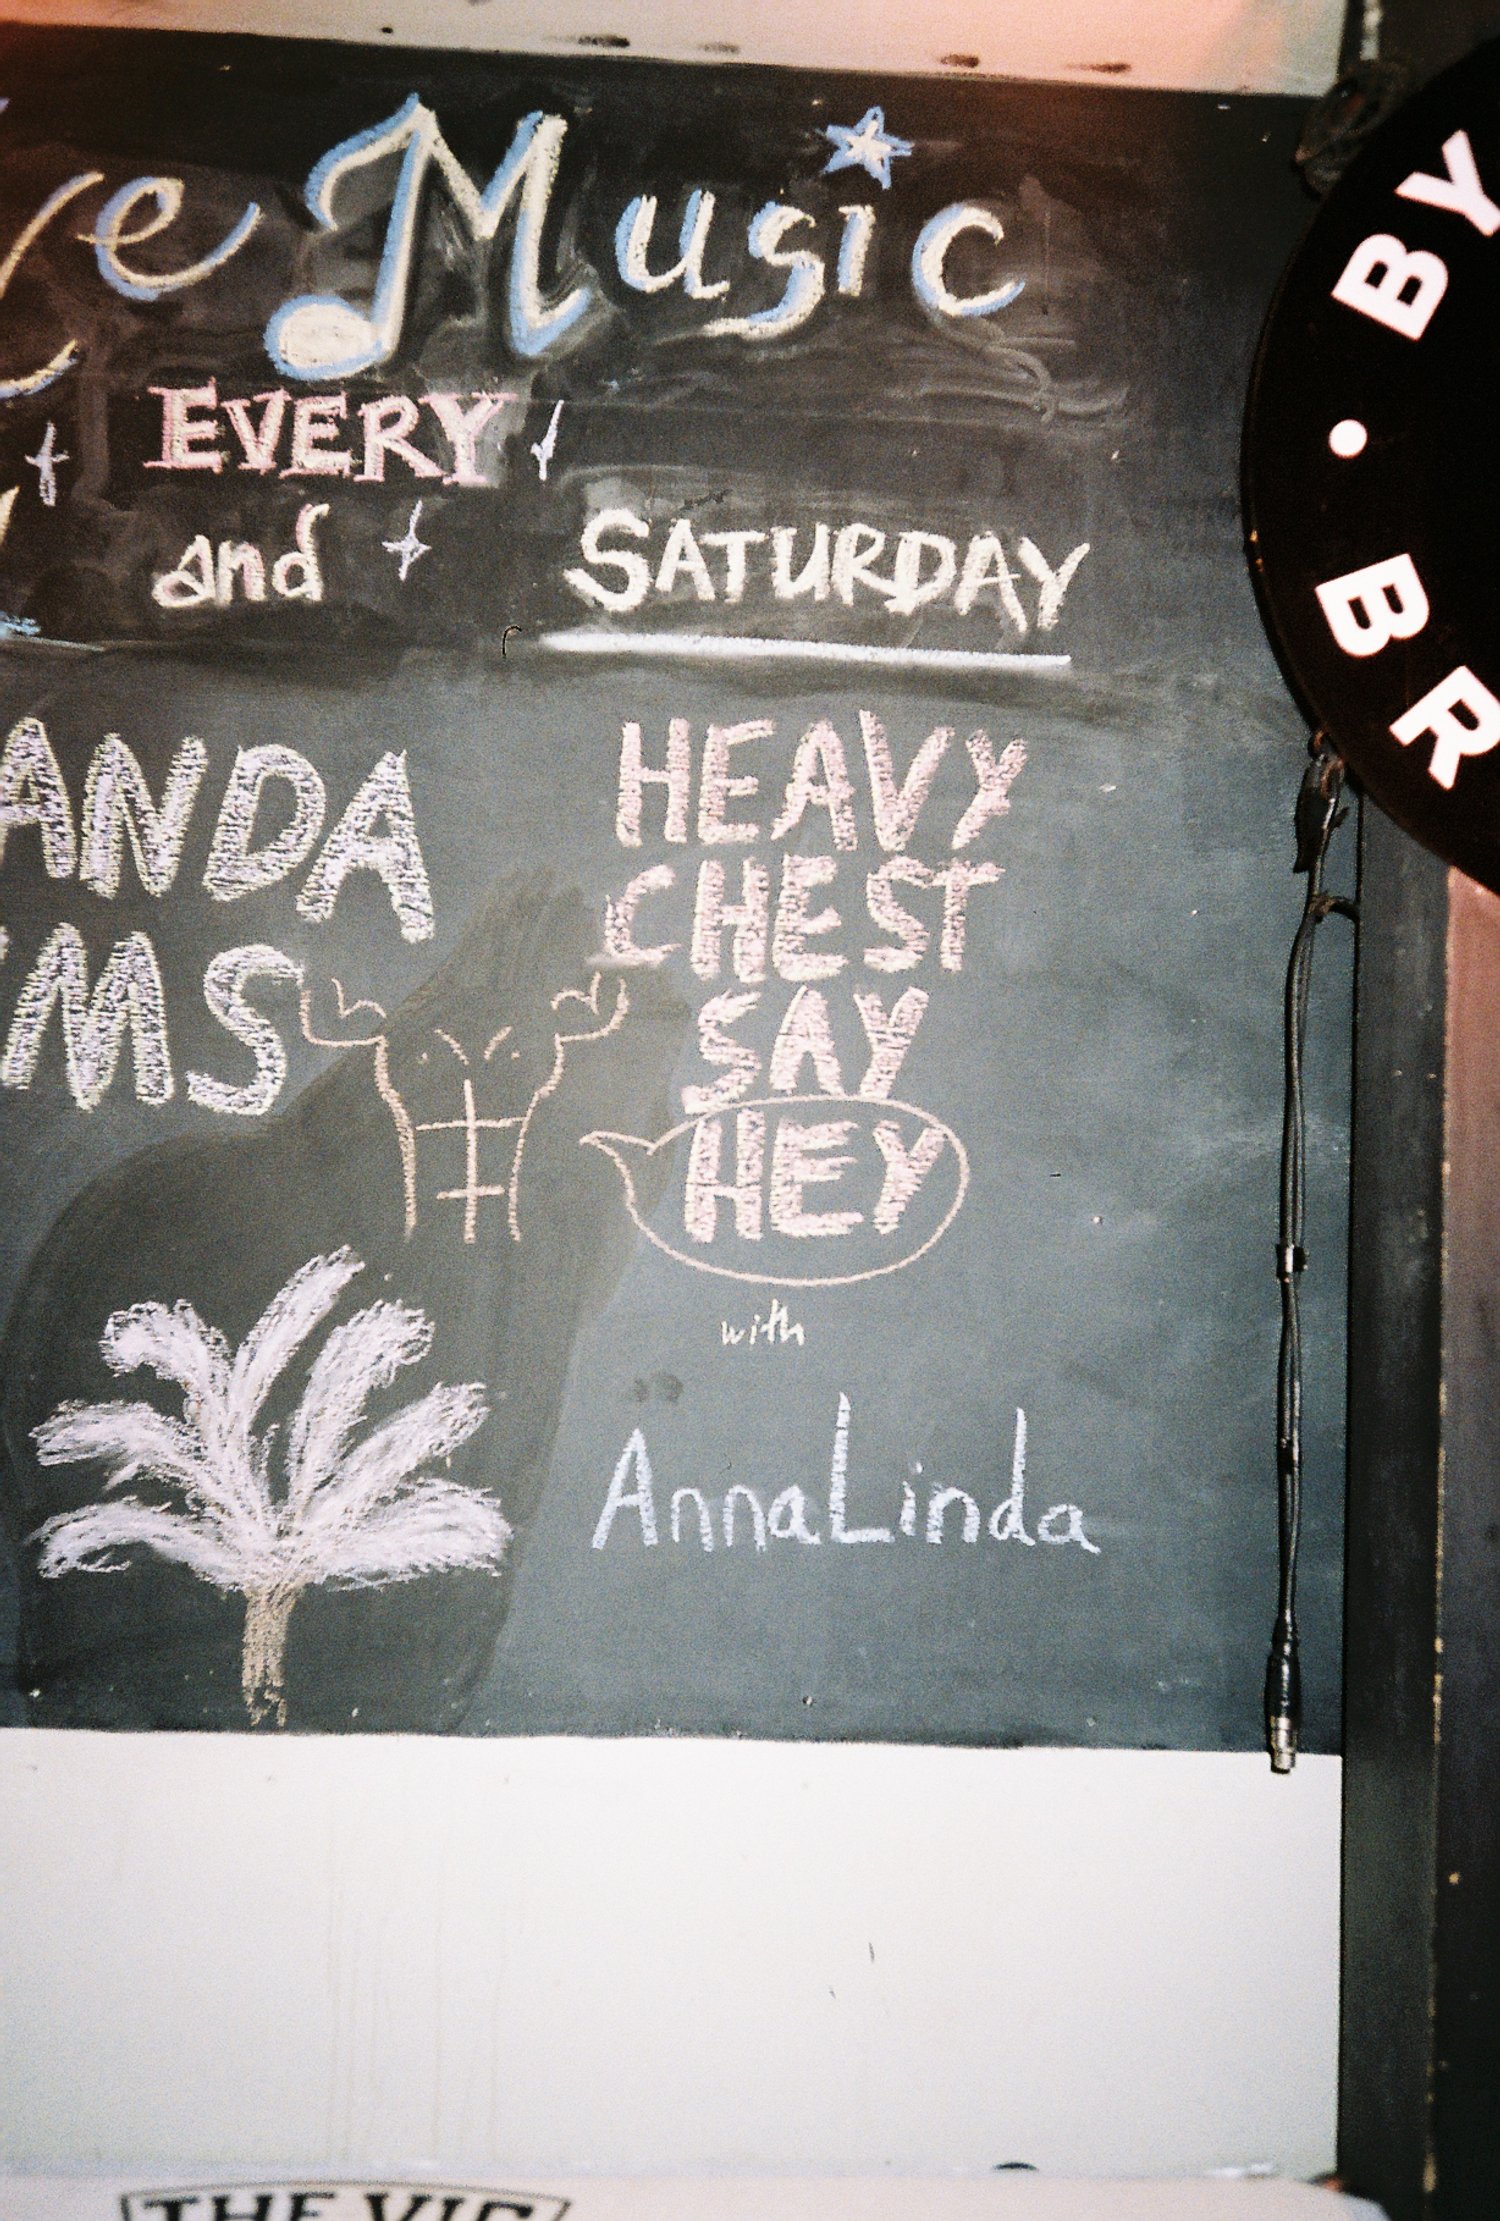 ve Music
EVERY
and SATURDAY
ANDA
MS
HEAVY
CHEST
SAY
HEY
with
AnnaLinda
BY
BR
THE VIC